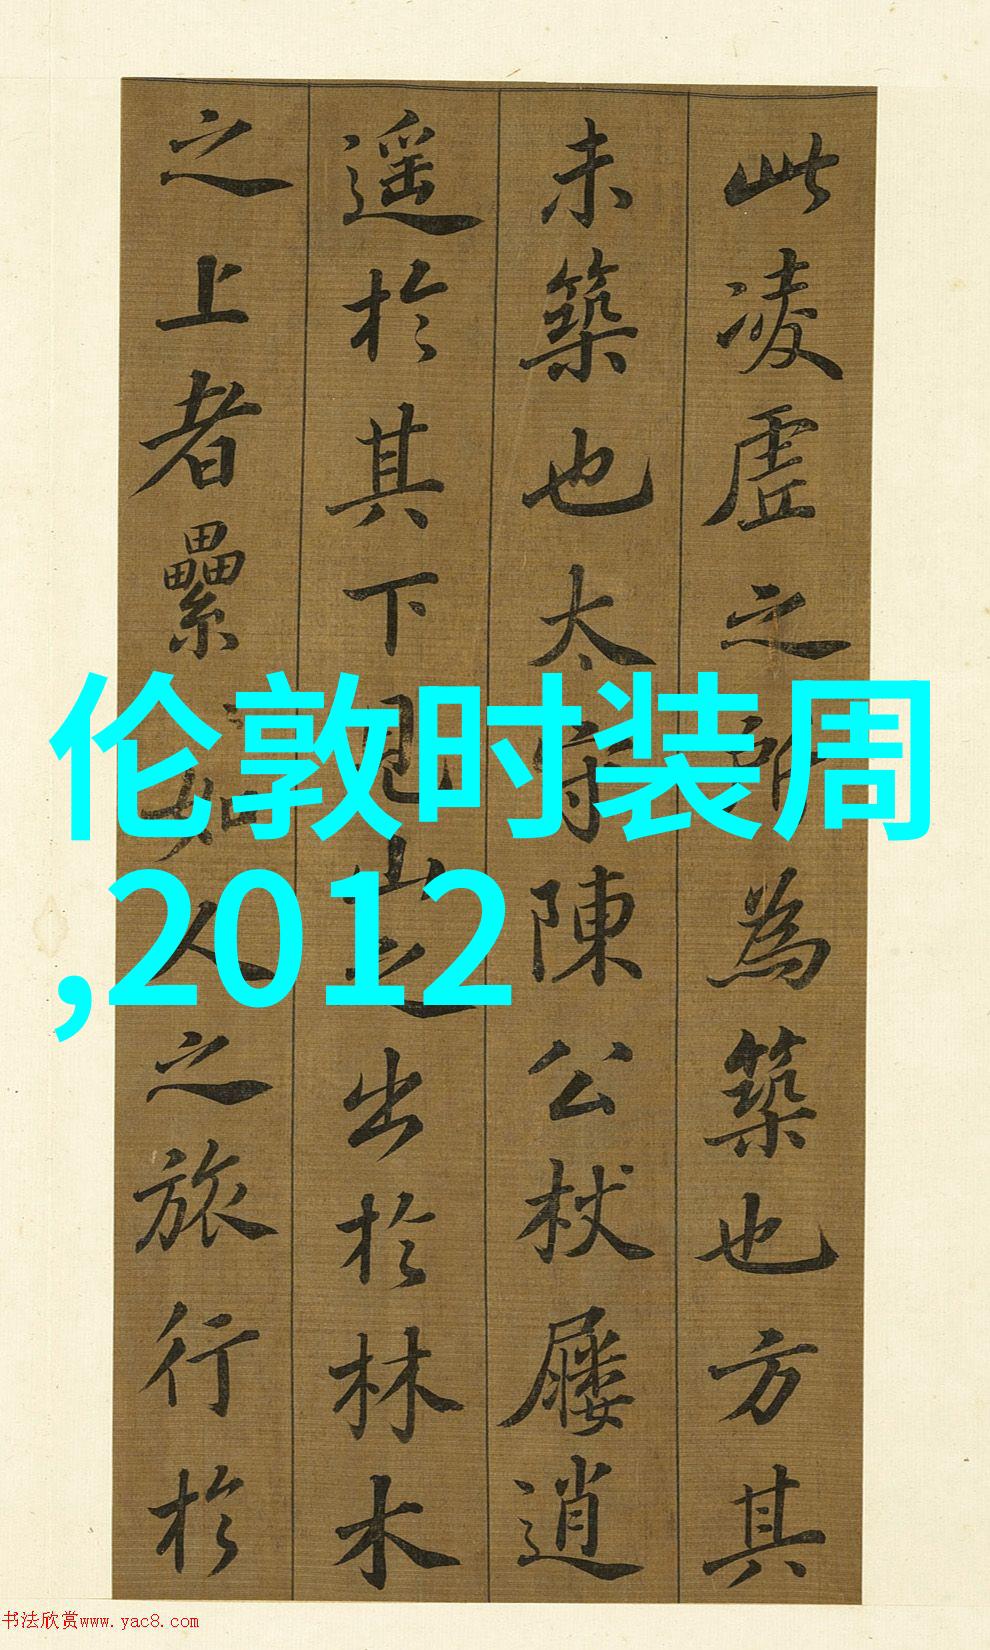 此凌虛之所為築也方其
未築也太守陳公杖屨逍
遥於其下見山之出於林木
之上者纍〻如人之旅行於
伦敦时装周
,2012
书法欣赏www.yac8.com